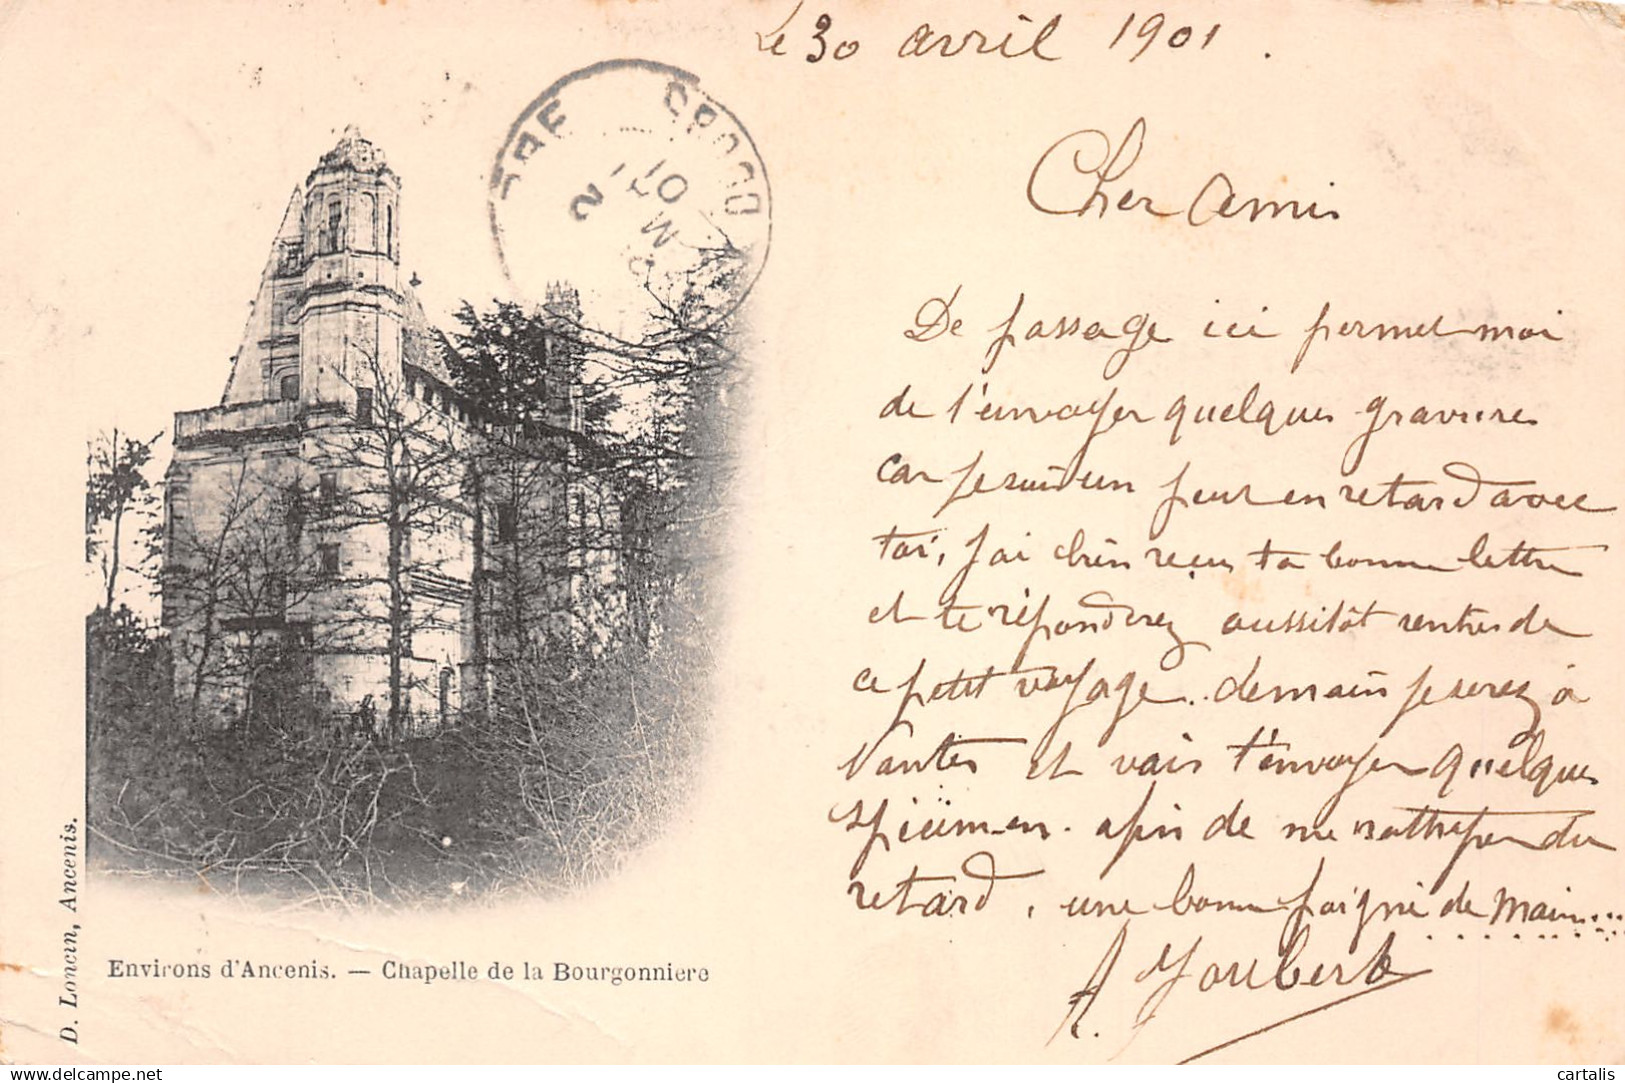 Le 30 avril 1901.
Cher Ami
De passage ici permet moi
de t'envoyer quelques gravures
car je suis un peu en retard avec
toi, j'ai bien reçu ta bonne lettre
et te répondrez aussitôt rentrer de
ce petit voyage. demain je serez à
Nantes et vais t'envoyer quelques
spécimen. afin de me rattraper du
retard, une bonne poigné de main......
A. Joubert
01
2
D. Loncun, Ancenis.
Environs d'Ancenis. — Chapelle de la Bourgonniere
www.delcampe.net
cartalis